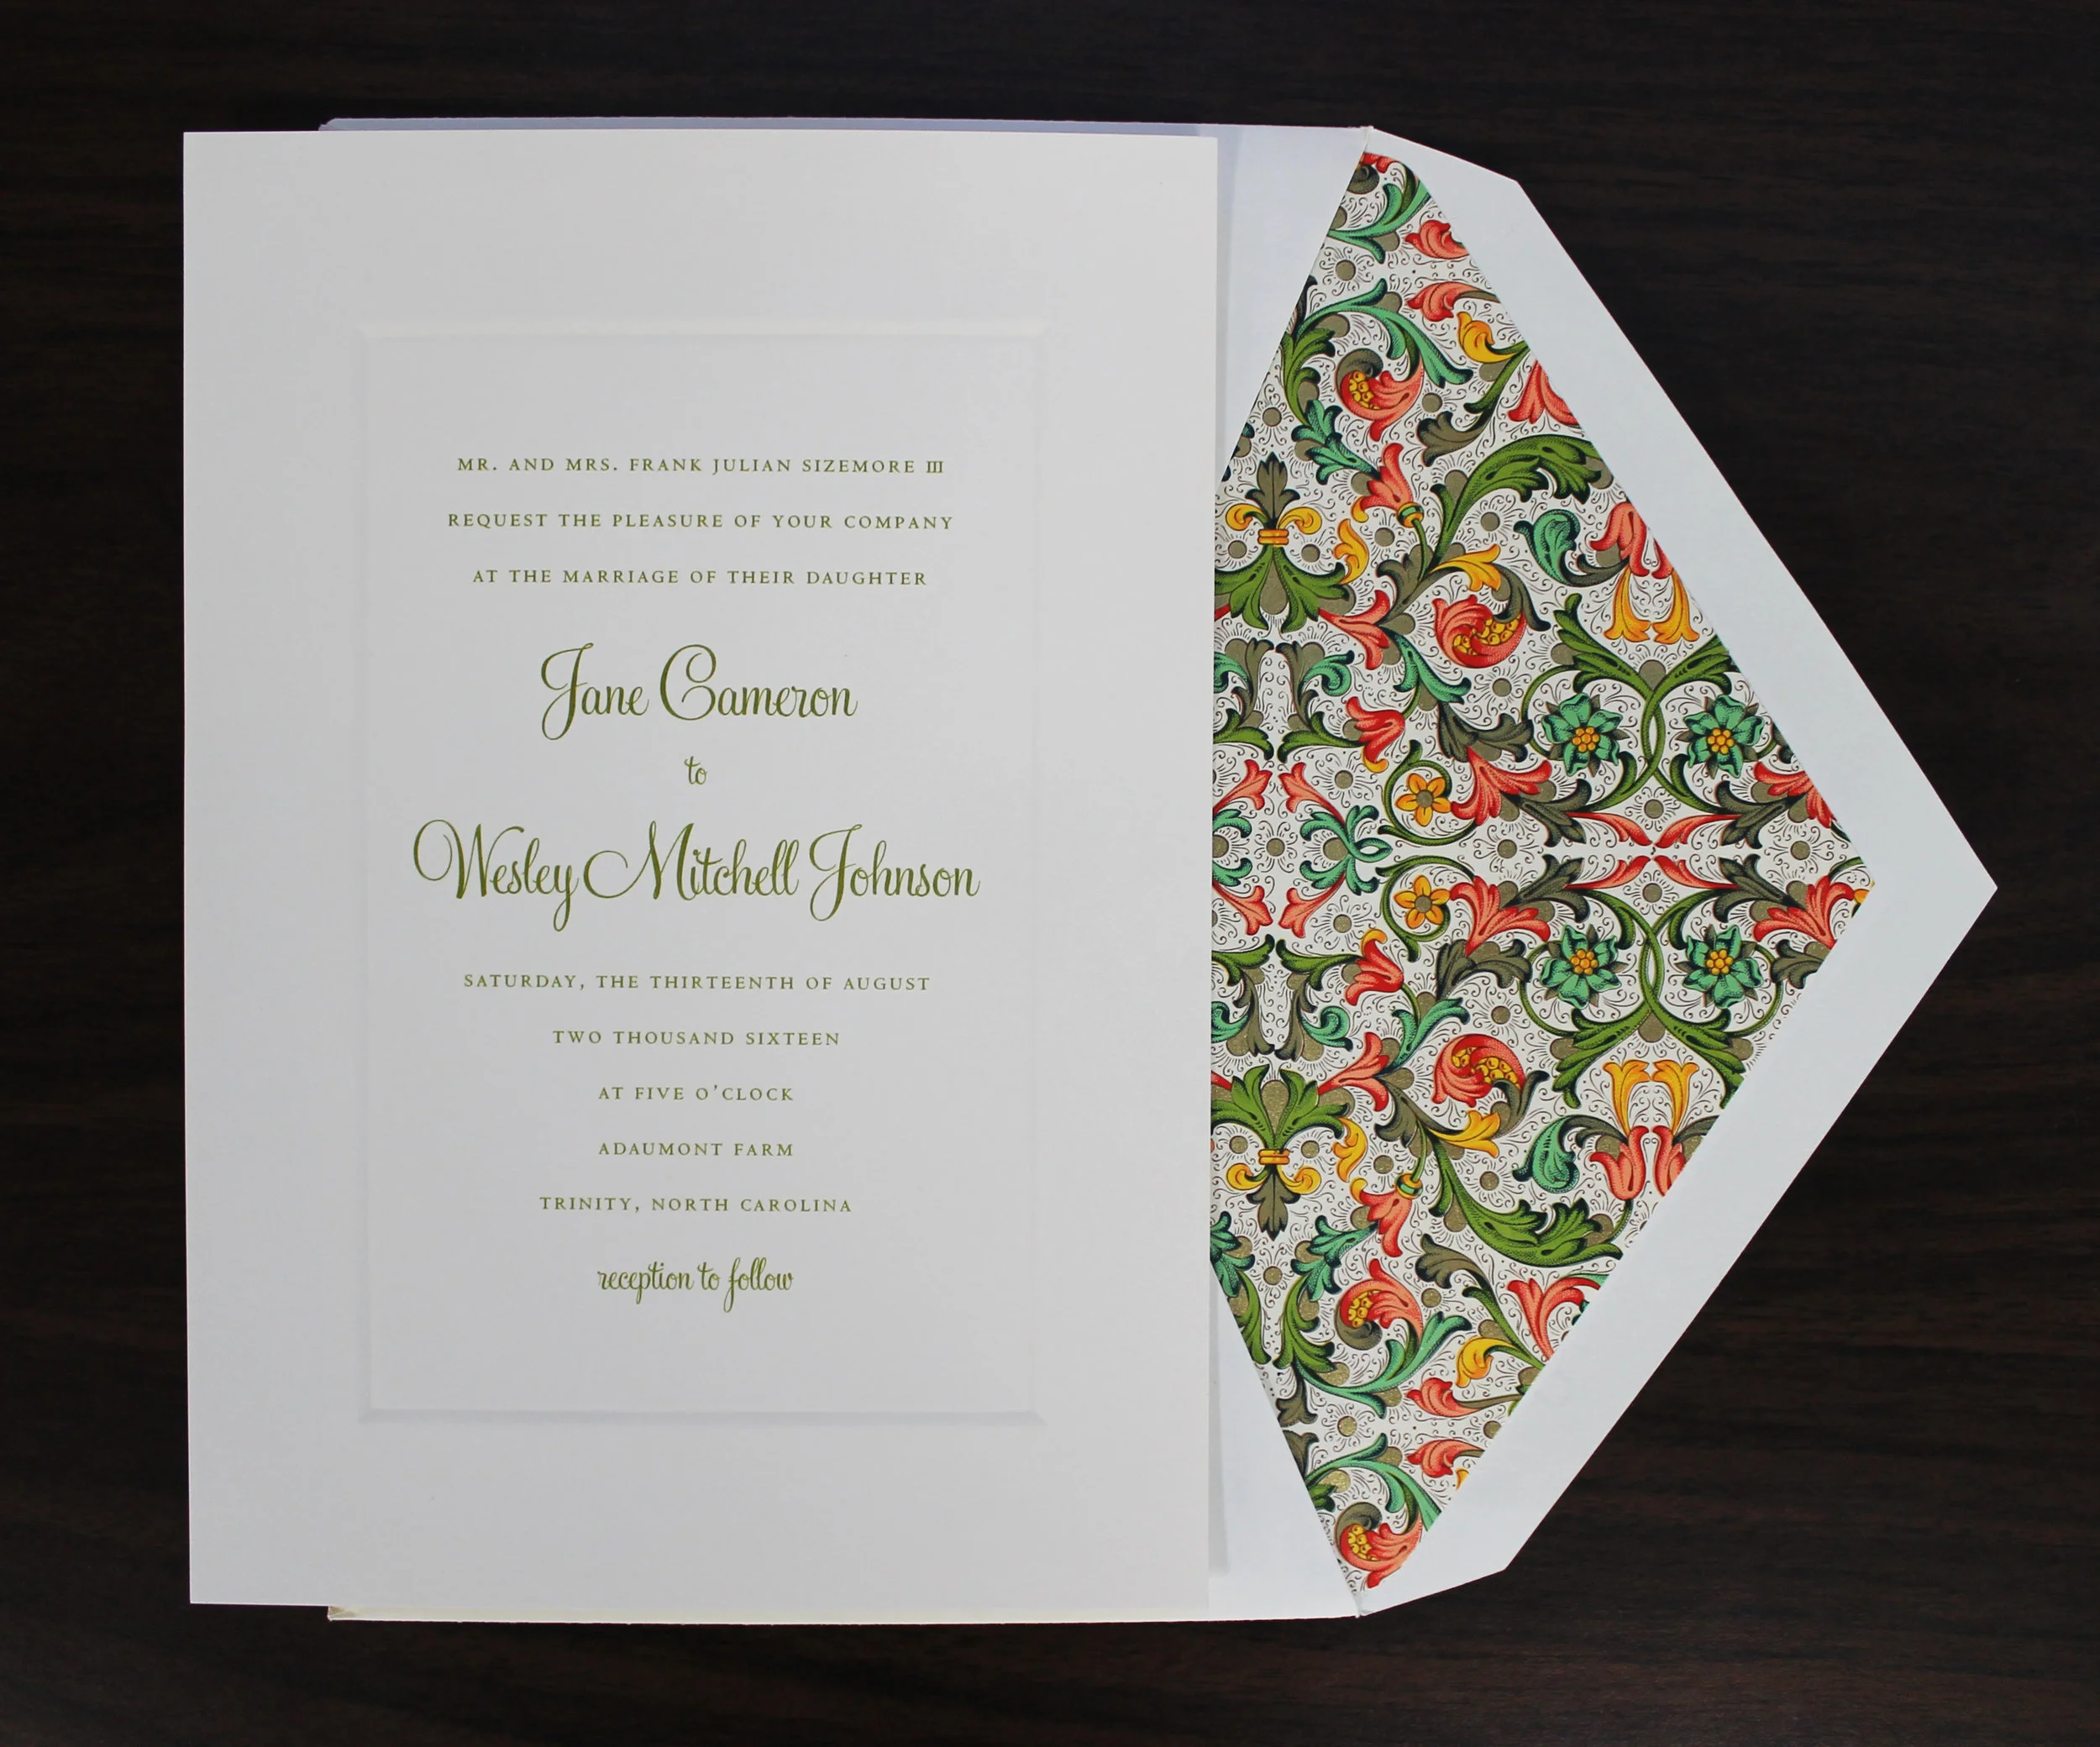 MR. AND MRS. FRANK JULIAN SIZEMORE III
REQUEST THE PLEASURE OF YOUR COMPANY
AT THE MARRIAGE OF THEIR DAUGHTER
Jane Cameron
to
Wesley Mitchell Johnson
SATURDAY, THE THIRTEENTH OF AUGUST
TWO THOUSAND SIXTEEN
AT FIVE O'CLOCK
ADAUMONT FARM
TRINITY, NORTH CAROLINA
reception to follow